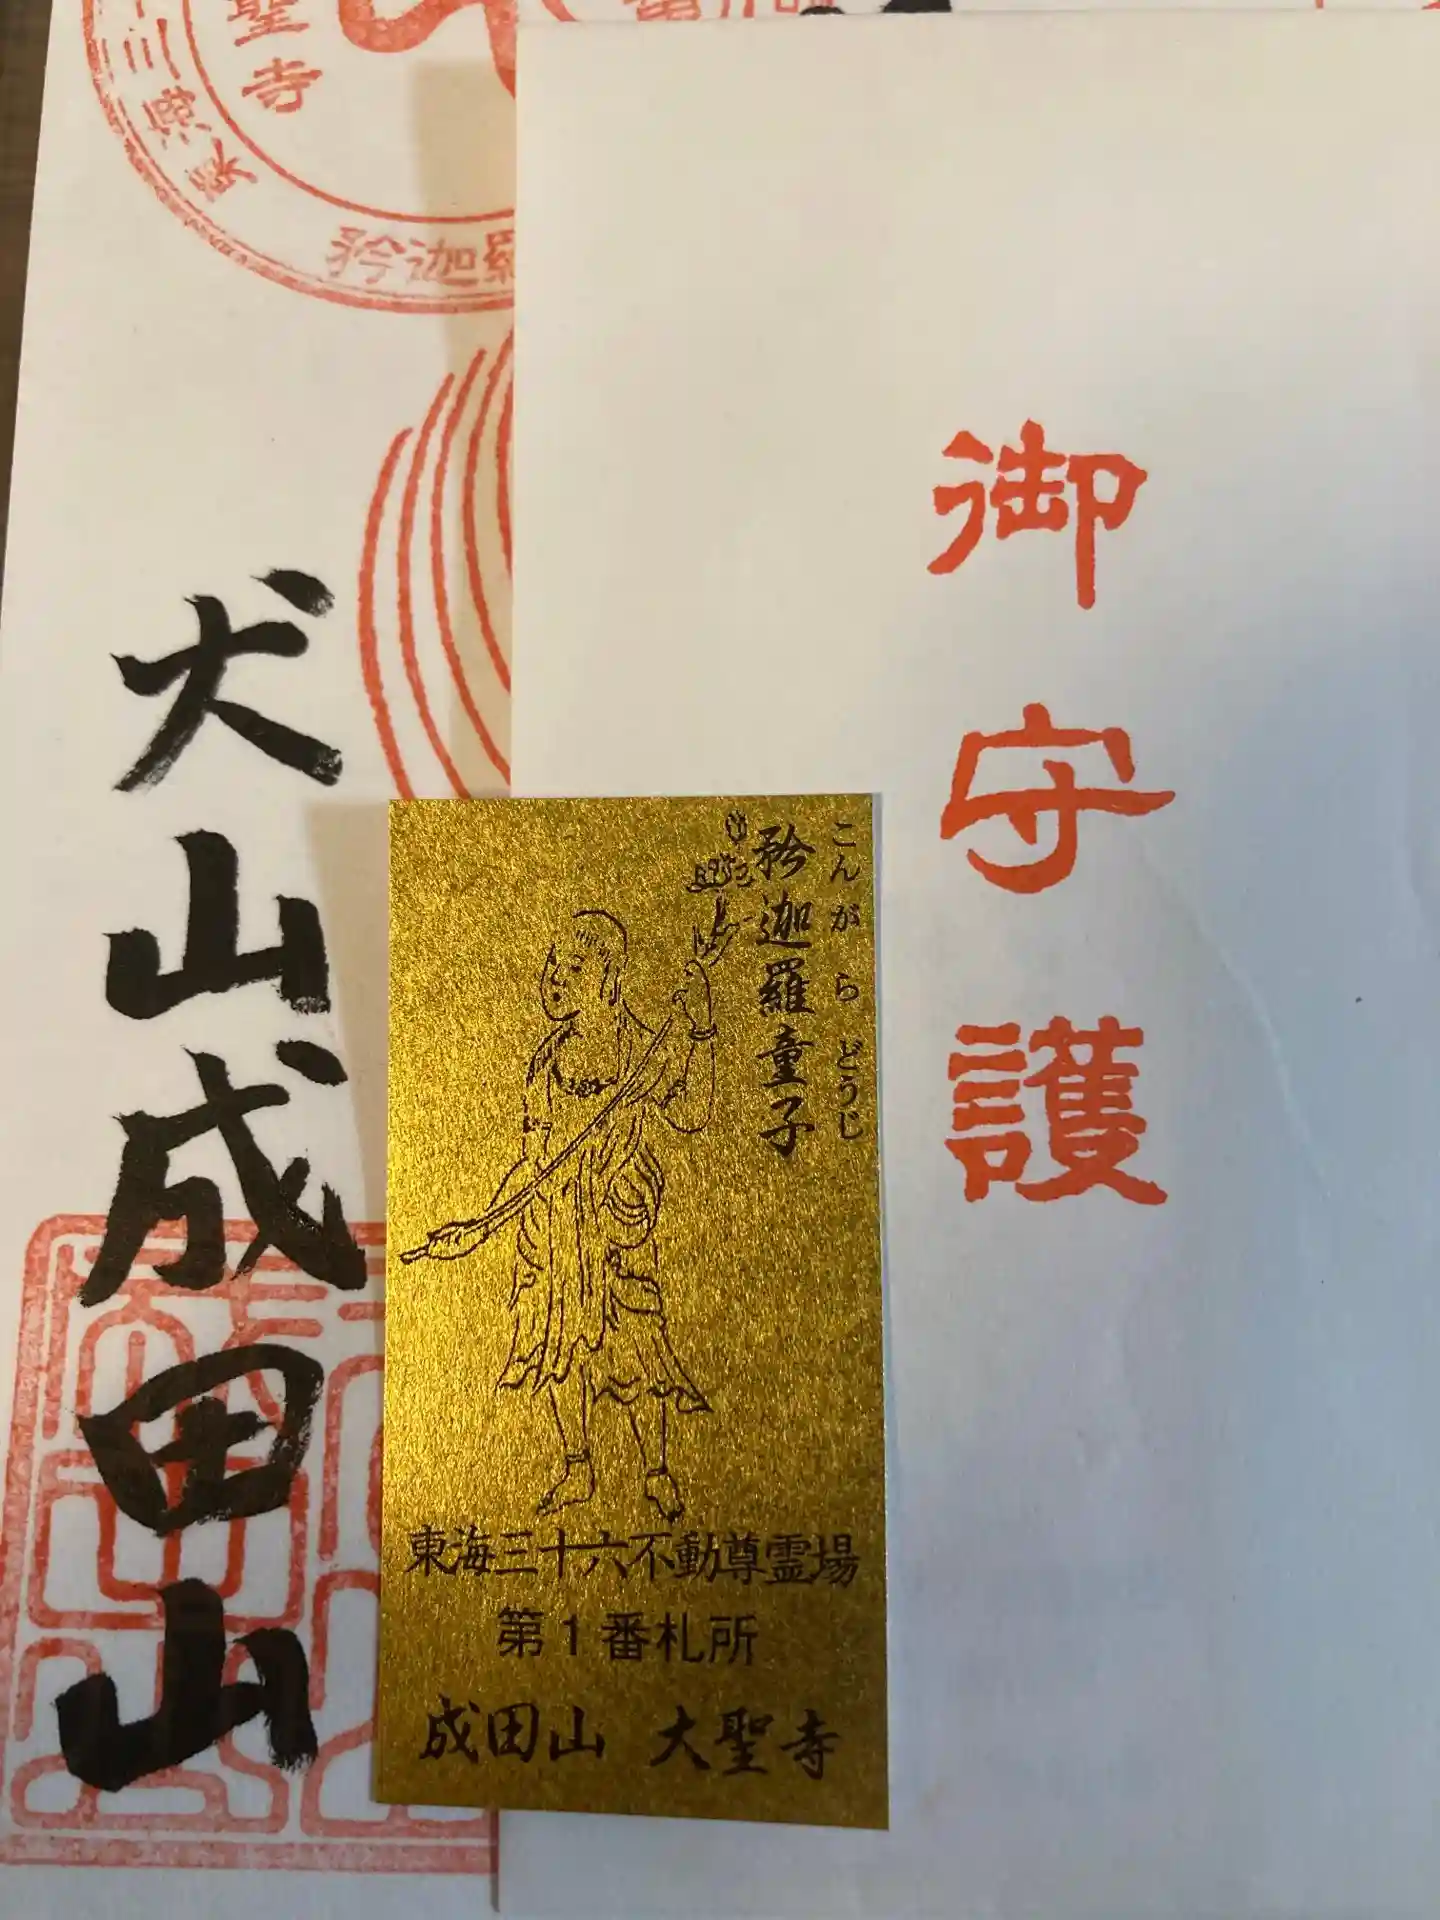 聖寺
東海三
矜迦羅
犬山成田山
御守護
こんがらどうじ
矜迦羅童子
東海三十六不動尊霊場
第1番札所
成田山 大聖寺